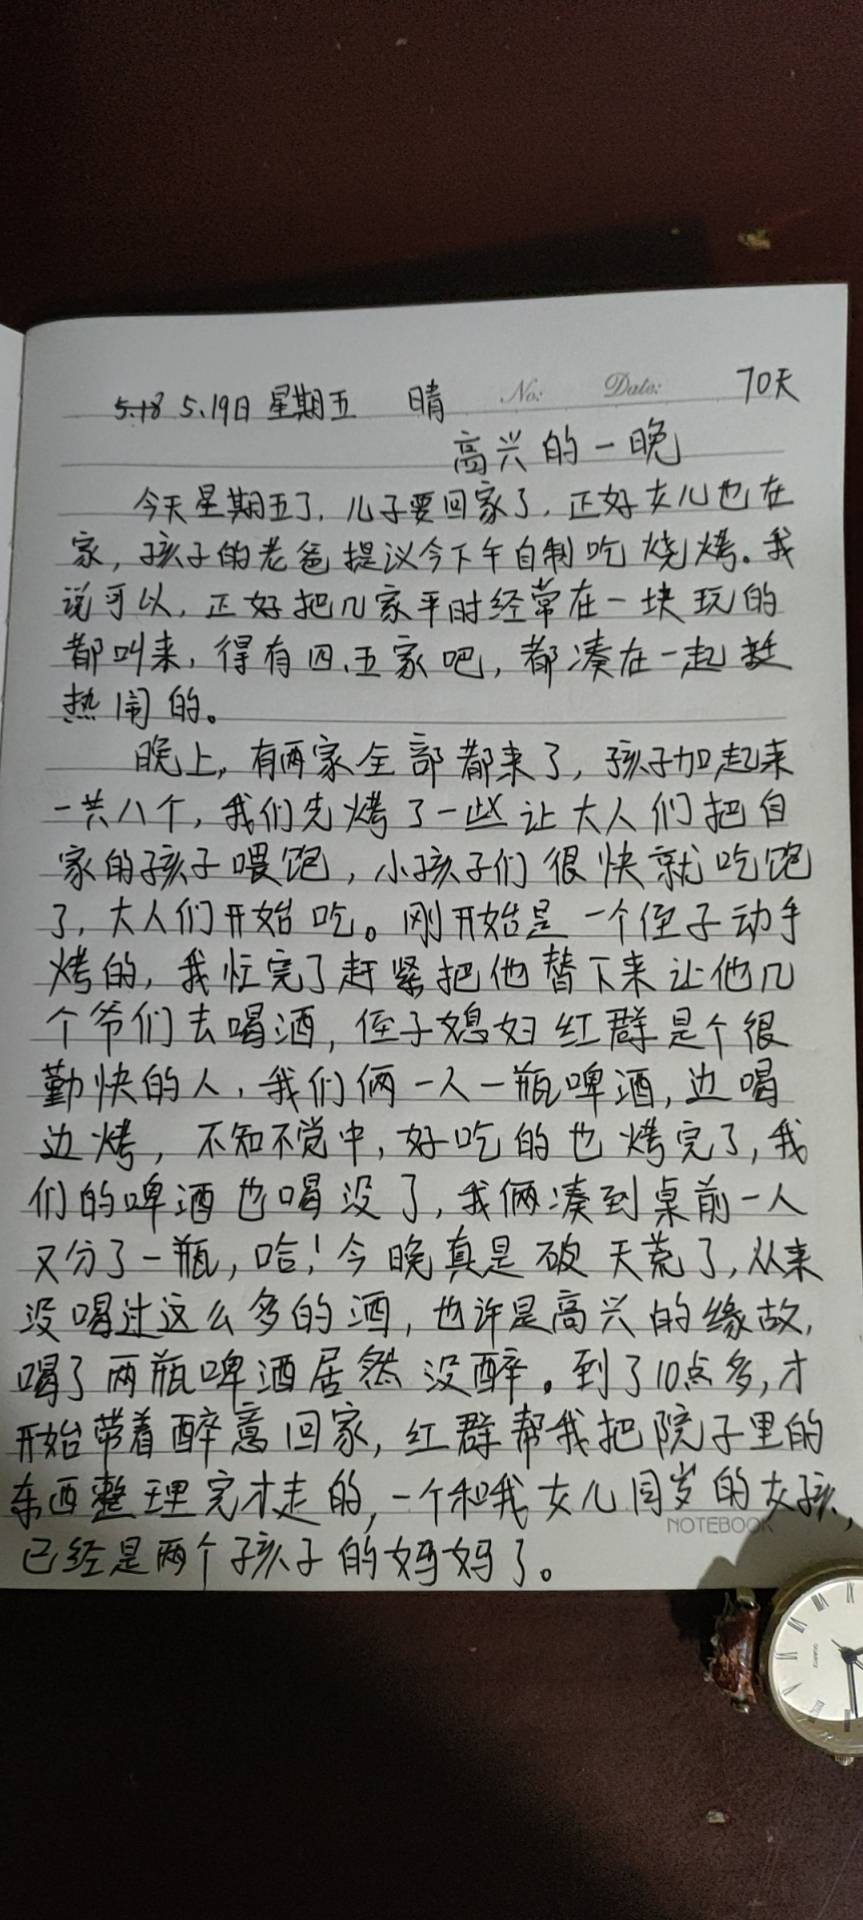 5.18 5.19日 星期五 晴 No: Date: 70天
高兴的一晚
今天星期五了，儿子要回家了，正好女儿也在
家，孩子的老爸提议今下午自制吃烧烤。我
说可以，正好把几家平时经常在一块玩的
都叫来，得有四、五家吧，都凑在一起挺
热闹的。
晚上，有两家全部都来了，孩子加起来
一共八个，我们先烤了一些让大人们把自
家的孩子喂饱，小孩子们很快就吃饱
了，大人们开始吃。刚开始是一个侄子动手
烤的，我忙完了赶紧把他替下来让他几
个爷们去喝酒，侄子媳妇红群是个很
勤快的人，我们俩一人一瓶啤酒，边喝
边烤，不知不觉中，好吃的也烤完了，我
们的啤酒也喝没了，我俩凑到桌前一人
又分了一瓶，哈！今晚真是破天荒了，从来
没喝过这么多的酒，也许是高兴的缘故，
喝了两瓶啤酒居然没醉。到了10点多，才
开始带着醉意回家，红群帮我把院子里的
东西整理完才走的，一个和我女儿同岁的女孩，
NOTEBOOK
已经是两个孩子的妈妈了。
QUARTZ